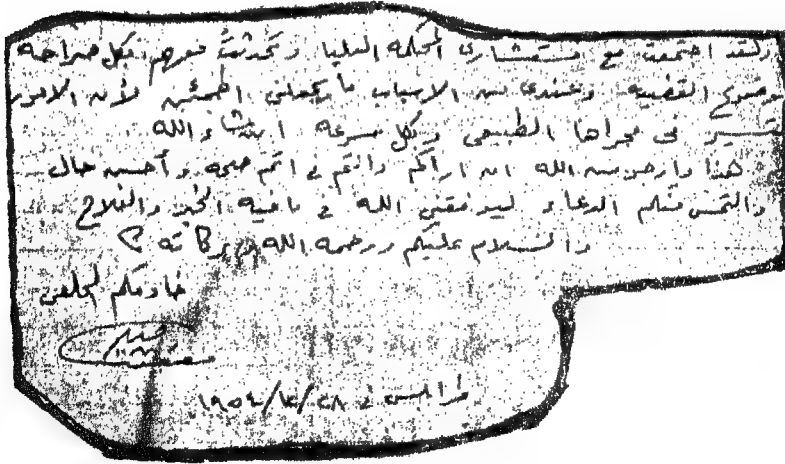 ولقد اجتمعت مع مستشاري المحكمة العليا وتحدثت معهم بكل صراحة
موضوع القضية وعندي من الاسباب ما يجعلني اطمئن لأن الامور
تسير في مجراها الطبيعي وبكل سرعة انشاء الله
هذا وارجو من الله ان اراكم وانتم في اتم صحة وأحسن حال
والتمس منكم الدعاء ليوفقني الله في ما فيه الخير والفلاح
والسلام عليكم ورحمة الله وبركاته
خادمكم المخلص
طرابلس في